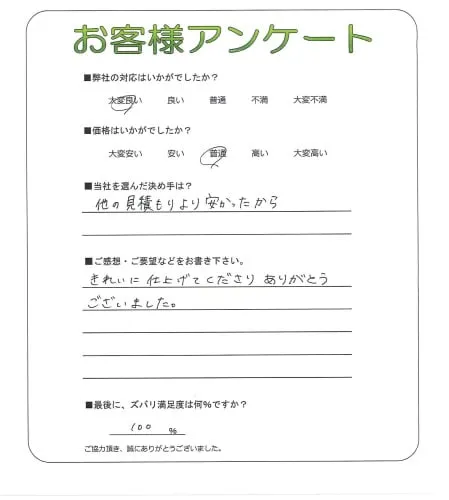 お客様アンケート
■弊社の対応はいかがでしたか?
大変良い 良い 普通 不満 大変不満
■価格はいかがでしたか?
大変安い 安い 普通 高い 大変高い
■当社を選んだ決め手は?
他の見積もりより安かったから
■ご感想・ご要望などをお書き下さい。
きれいに仕上げてくださりありがとう
ございました。
■最後に、ズバリ満足度は何%ですか?
100 %
ご協力頂き、誠にありがとうございました。